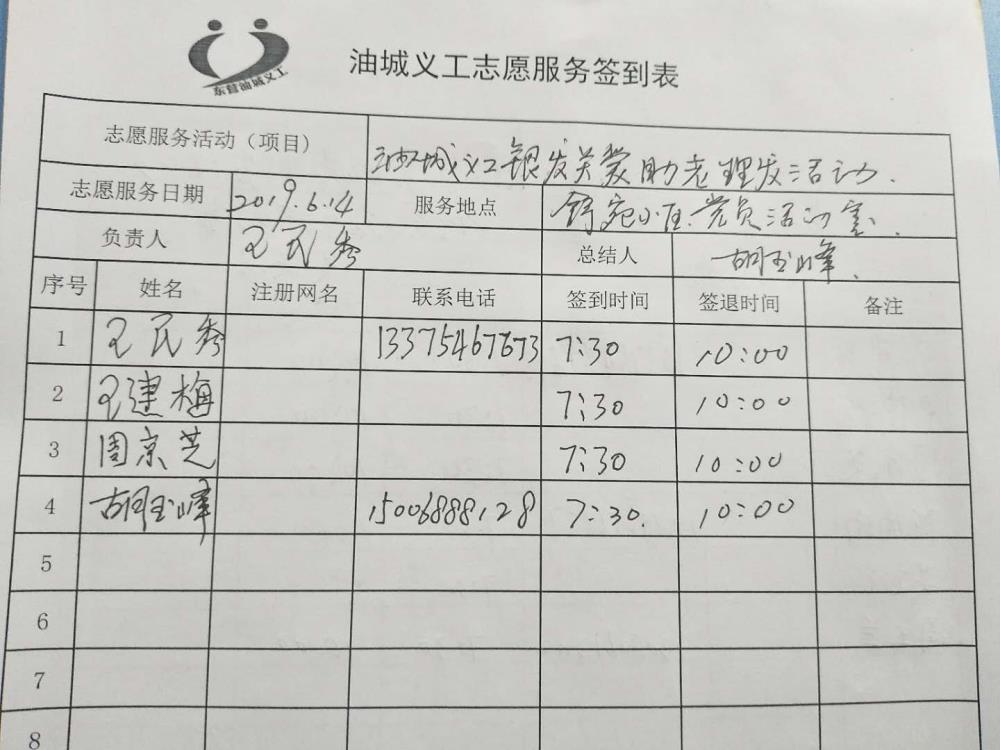 东营油城义工
油城义工志愿服务签到表
志愿服务活动（项目） 油城义工银发关爱助老理发活动.
志愿服务日期 2019.6.14 服务地点 小区.党员活动室.
负责人 王民秀 总结人 胡玉峰.
序号 姓名 注册网名 联系电话 签到时间 签退时间 备注
1 王民秀 13375467673 7:30 10:00
2 王建梅 7:30 10:00
3 周京芝 7:30 10:00
4 胡玉峰 15006888128 7:30. 10:00
5
6
7
8